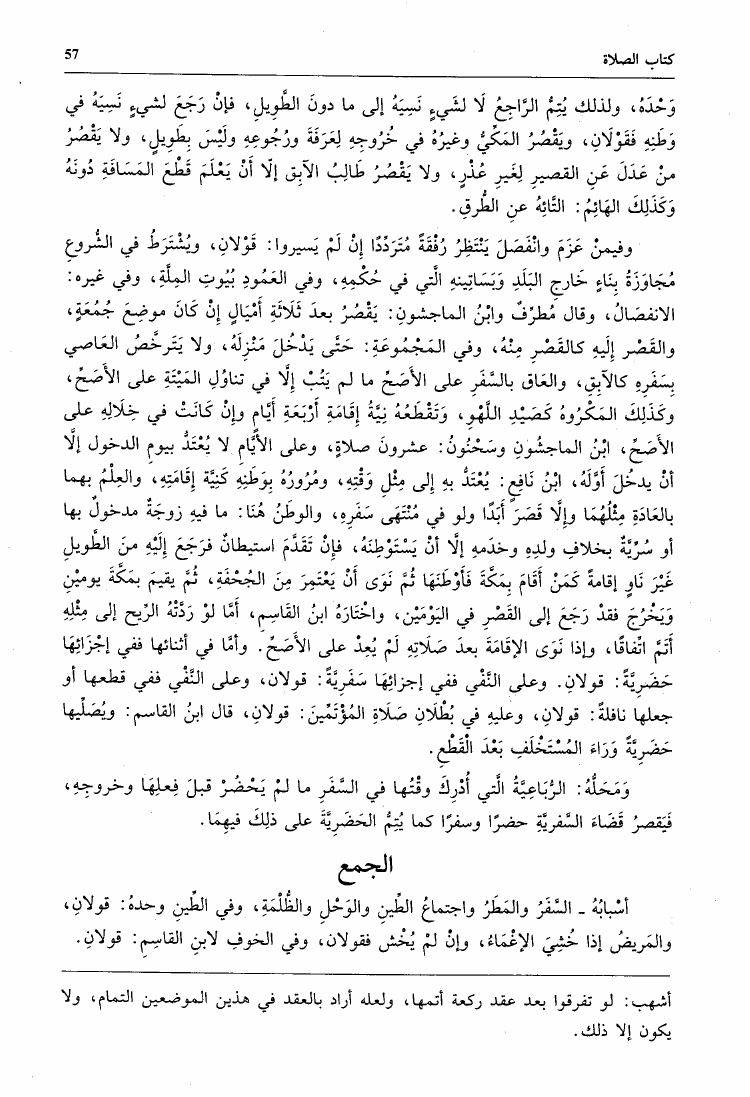 كتاب الصلاة 57
وَحْدَهُ، ولذلك يُتِمُّ الرَّاجِعُ لَا لشَيءٍ نَسِيَهُ إلى ما دونَ الطَّوِيلِ، فإنْ رَجَعَ لشيءٍ نَسِيَهُ في
وَطَنِهِ فَقَوْلَانِ، ويَقْصُرُ المَكِّيُّ وغيرُهُ في خُرُوجِهِ لِعَرَفَةَ ورُجُوعِهِ ولَيْسَ بِطَوِيلٍ، ولا يَقْصُرُ
منْ عَدَلَ عَنِ القصيرِ لِغَيرِ عُذْرٍ، ولا يَقْصُرُ طَالِبُ الآبِقِ إلّا أَنْ يَعْلَمَ قَطْعَ المَسَافَةِ دُونَهُ
وَكَذَلِكَ الهَائِمُ: التَّائِهُ عنِ الطُّرقِ.
وفيمنْ عَزَمَ وانْفَصَلَ يَنْتَظِرُ رُفْقَةً مُتَرَدِّدًا إنْ لَمْ يَسيروا: قَوْلانِ، ويُشْتَرَطُ في الشُّروعِ
مُجَاوَزَةُ بِنَاءِ خَارِجِ البَلَدِ وَبَسَاتِينِهِ الَّتي في حُكْمِهِ، وفي العَمُودِ بُيُوتِ الحِلَّةِ، وفي غيره:
الانفصَالُ، وقال مُطرِّفٌ وابْنُ الماجشونِ: يَقْصُرُ بعدَ ثَلَاثَةِ أَمْيَالٍ إنْ كَانَ موضِعَ جُمُعَةٍ،
والقَصْر إلَيهِ كالقَصْرِ مِنْهُ، وفي المَجْمُوعَةِ: حَتَّى يَدْخُلَ مَنْزِلَهُ، ولا يَتَرخَّصُ العَاصي
بِسَفَرِهِ كالآبِقِ، والعَاق بالسَّفَرِ على الأصَحِّ ما لم يَتُبْ إلَّا في تناوُلِ المَيْتَةِ على الأصَحِّ،
وكَذَلِكَ المَكْرُوهُ كَصَيْدِ اللَّهْوِ، وَتَقْطَعُهُ نِيَّةُ إقَامَةِ أَرْبَعَةِ أَيَّامٍ وإنْ كَانَتْ في خِلَالِهِ على
الأصَحِّ، ابْنُ الماجشُونِ وسَحْنُونُ: عشرونَ صلاةٍ، وعلى الأيَّامِ لا يُعْتَدُّ بيومِ الدخول إلَّا
أنْ يدخُلَ أوَّلَهُ، ابْنُ نَافِعٍ: يُعْتَدُّ به إلى مِثْلِ وَقْتِهِ، ومُرُورُهُ بِوَطَنِهِ كَنِيَّةِ إقَامَتِهِ، والعِلْمُ بهما
بالعَادَةِ مِثْلُهُمَا وإلَّا قَصَرَ أَبَدًا ولو في مُنْتَهَى سَفَرِهِ، والوطَنُ هُنَا: ما فيهِ زوجَةٌ مدخولٌ بها
أو سُرِّيَّةٌ بخلافِ ولدِهِ وخدَمِهِ إلَّا أنْ يَسْتَوْطِنَهُ، فإنْ تَقَدَّمَ استيطانٌ فرَجَعَ إلَيْهِ منَ الطَّويلِ
غَيْرَ نَاوٍ إقامةً كَمَنْ أَقَامَ بِمَكَّةَ فَأَوْطَنَهَا ثُمَّ نَوَى أَنْ يَعْتَمِرَ مِنَ الجُحْفَةِ، ثُمَّ يقيمَ بمَكَّةَ يومَيْنِ
وَيَخْرُجَ فقدْ رَجَعَ إلى القَصْرِ في اليَوْمَيْنِ، واخْتَارَهُ ابنُ القَاسِمِ، أَمَّا لوْ رَدَّتْهُ الرِّيح إلى مِثْلِهِ
أَتَمَّ اتِّفاقًا، وإذا نَوَى الإقَامَةَ بعدَ صَلَاتِهِ لَمْ يُعِدْ على الأصَحِّ. وأمَّا في أثنائها ففي إجْزَائِهَا
حَضَرِيَّةً: قولانِ. وعلى النَّفْيِ ففي إجزائِهَا سَفَرِيَّةً: قولان، وعلى النَّفْيِ ففي قطعها أو
جعلها نافلةً: قولانِ، وعليهِ في بُطْلَانِ صَلَاةِ المُؤْتَمِّينَ: قولانِ، قال ابنُ القاسم: ويُصَلِّيها
حَضَرِيَّةً وَرَاءَ المُسْتَخْلَفِ بَعْدَ القَطْعِ.
وَمَحَلُّهُ: الرُّبَاعِيَّةُ الَّتي أُدْرِكَ وقْتُها في السَّفَرِ ما لَمْ يَحْضُرْ قبلَ فِعلِهَا وخروجِهِ،
فَيَقصرُ قَضَاءَ السَّفريَّةِ حضرًا وسفرًا كما يُتِمُّ الحَضَرِيَّةَ على ذلِكَ فيهِمَا.
الجمع
أسْبابُهُ ـ السَّفَرُ والمَطَرُ واجتماعُ الطِّينِ والوَحْلِ والظُّلْمَةِ، وفي الطِّينِ وحدهُ: قولانِ،
والمَريضُ إذا خُشِيَ الإغْمَاءُ، وإنْ لَمْ يُخْش فقولان، وفي الخوفِ لابنِ القاسِمِ: قولانِ.
أشهب: لو تفرقوا بعد عقد ركعة أتمها، ولعله أراد بالعقد في هذين الموضعين التمام، ولا
يكون إلا ذلك.